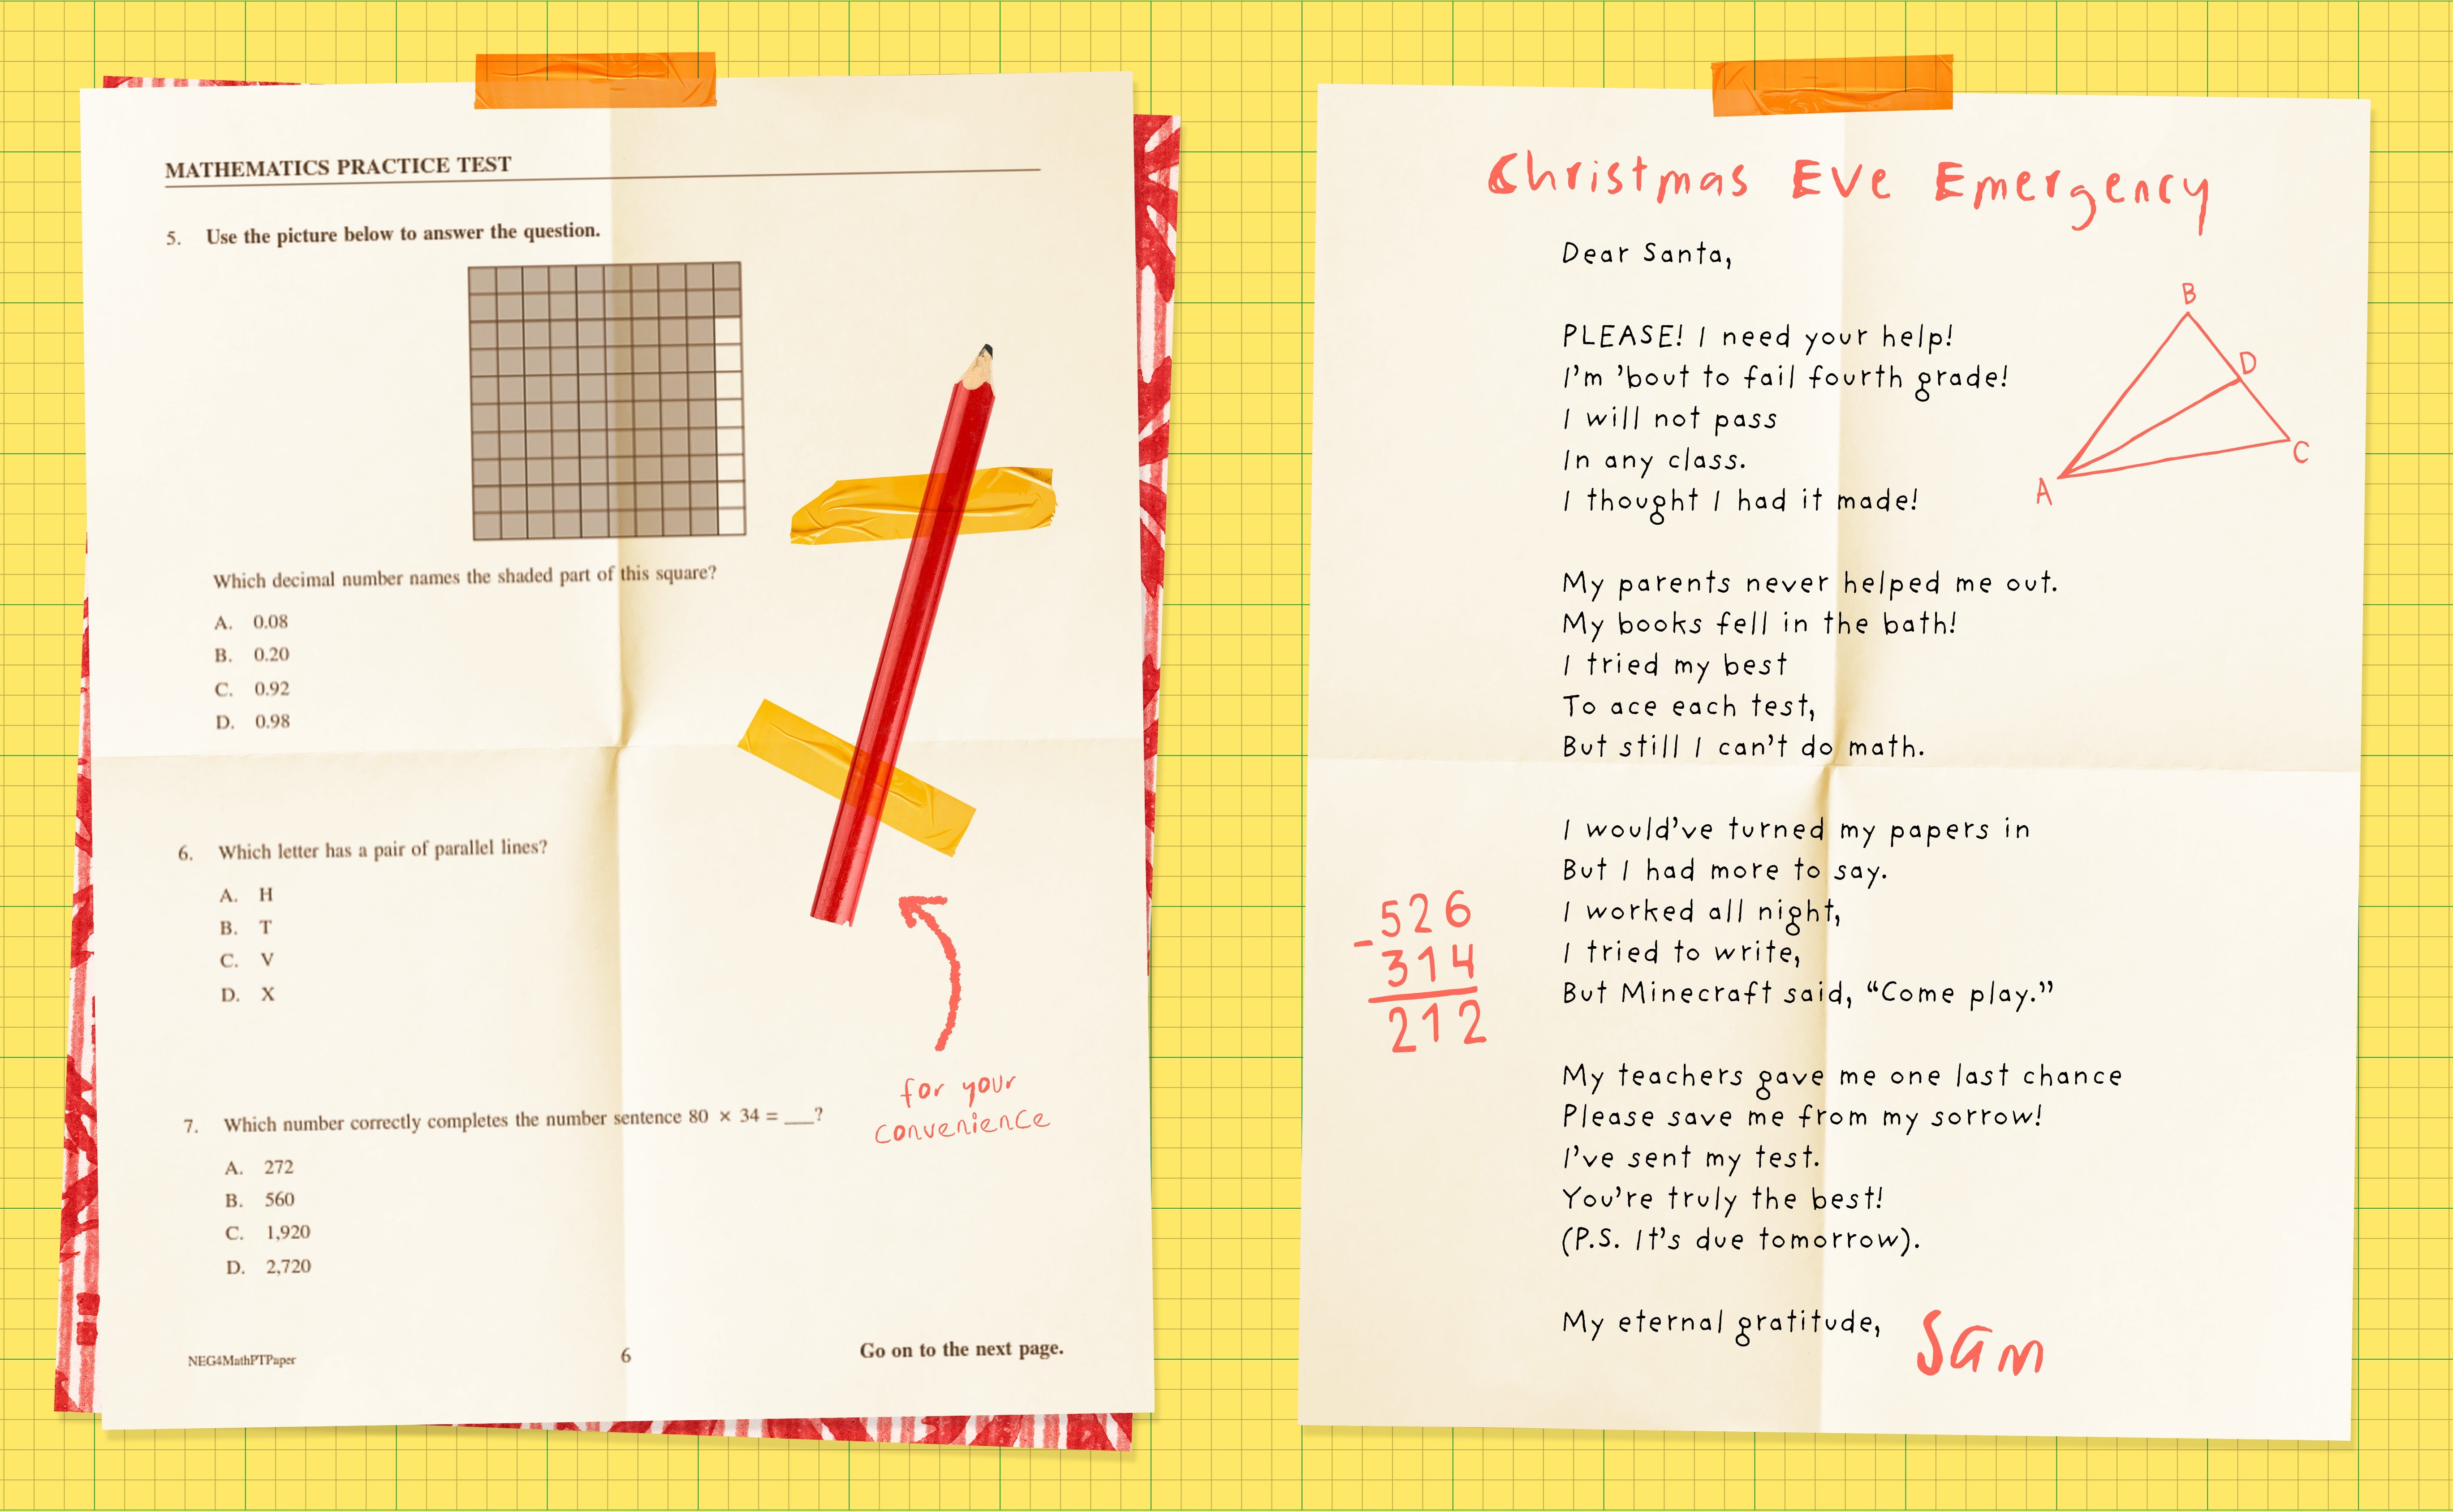 MATHEMATICS PRACTICE TEST
5. Use the picture below to answer the question.
Which decimal number names the shaded part of this square?
A. 0.08
B. 0.20
C. 0.92
D. 0.98
6. Which letter has a pair of parallel lines?
A. H
B. T
C. V
D. X
for your
convenience
7. Which number correctly completes the number sentence 80 × 34 = ___?
A. 272
B. 560
C. 1,920
D. 2,720
NEG4MathPTPaper
6
Go on to the next page.
Christmas Eve Emergency
Dear Santa,
PLEASE! I need your help!
I'm 'bout to fail fourth grade!
I will not pass
In any class.
I thought I had it made!
B
D
C
A
My parents never helped me out.
My books fell in the bath!
I tried my best
To ace each test,
But still I can't do math.
I would've turned my papers in
But I had more to say.
I worked all night,
I tried to write,
But Minecraft said, “Come play.”
-526
314
212
My teachers gave me one last chance
Please save me from my sorrow!
I've sent my test.
You're truly the best!
(P.S. It's due tomorrow).
My eternal gratitude,
Sam